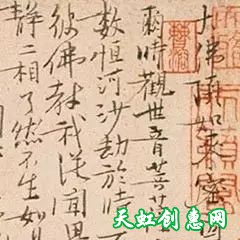 大佛頂如來密因
爾時觀世音菩薩
數恒河沙劫於
彼佛教我從聞思
靜二相了然不生如是
天虹创惠网